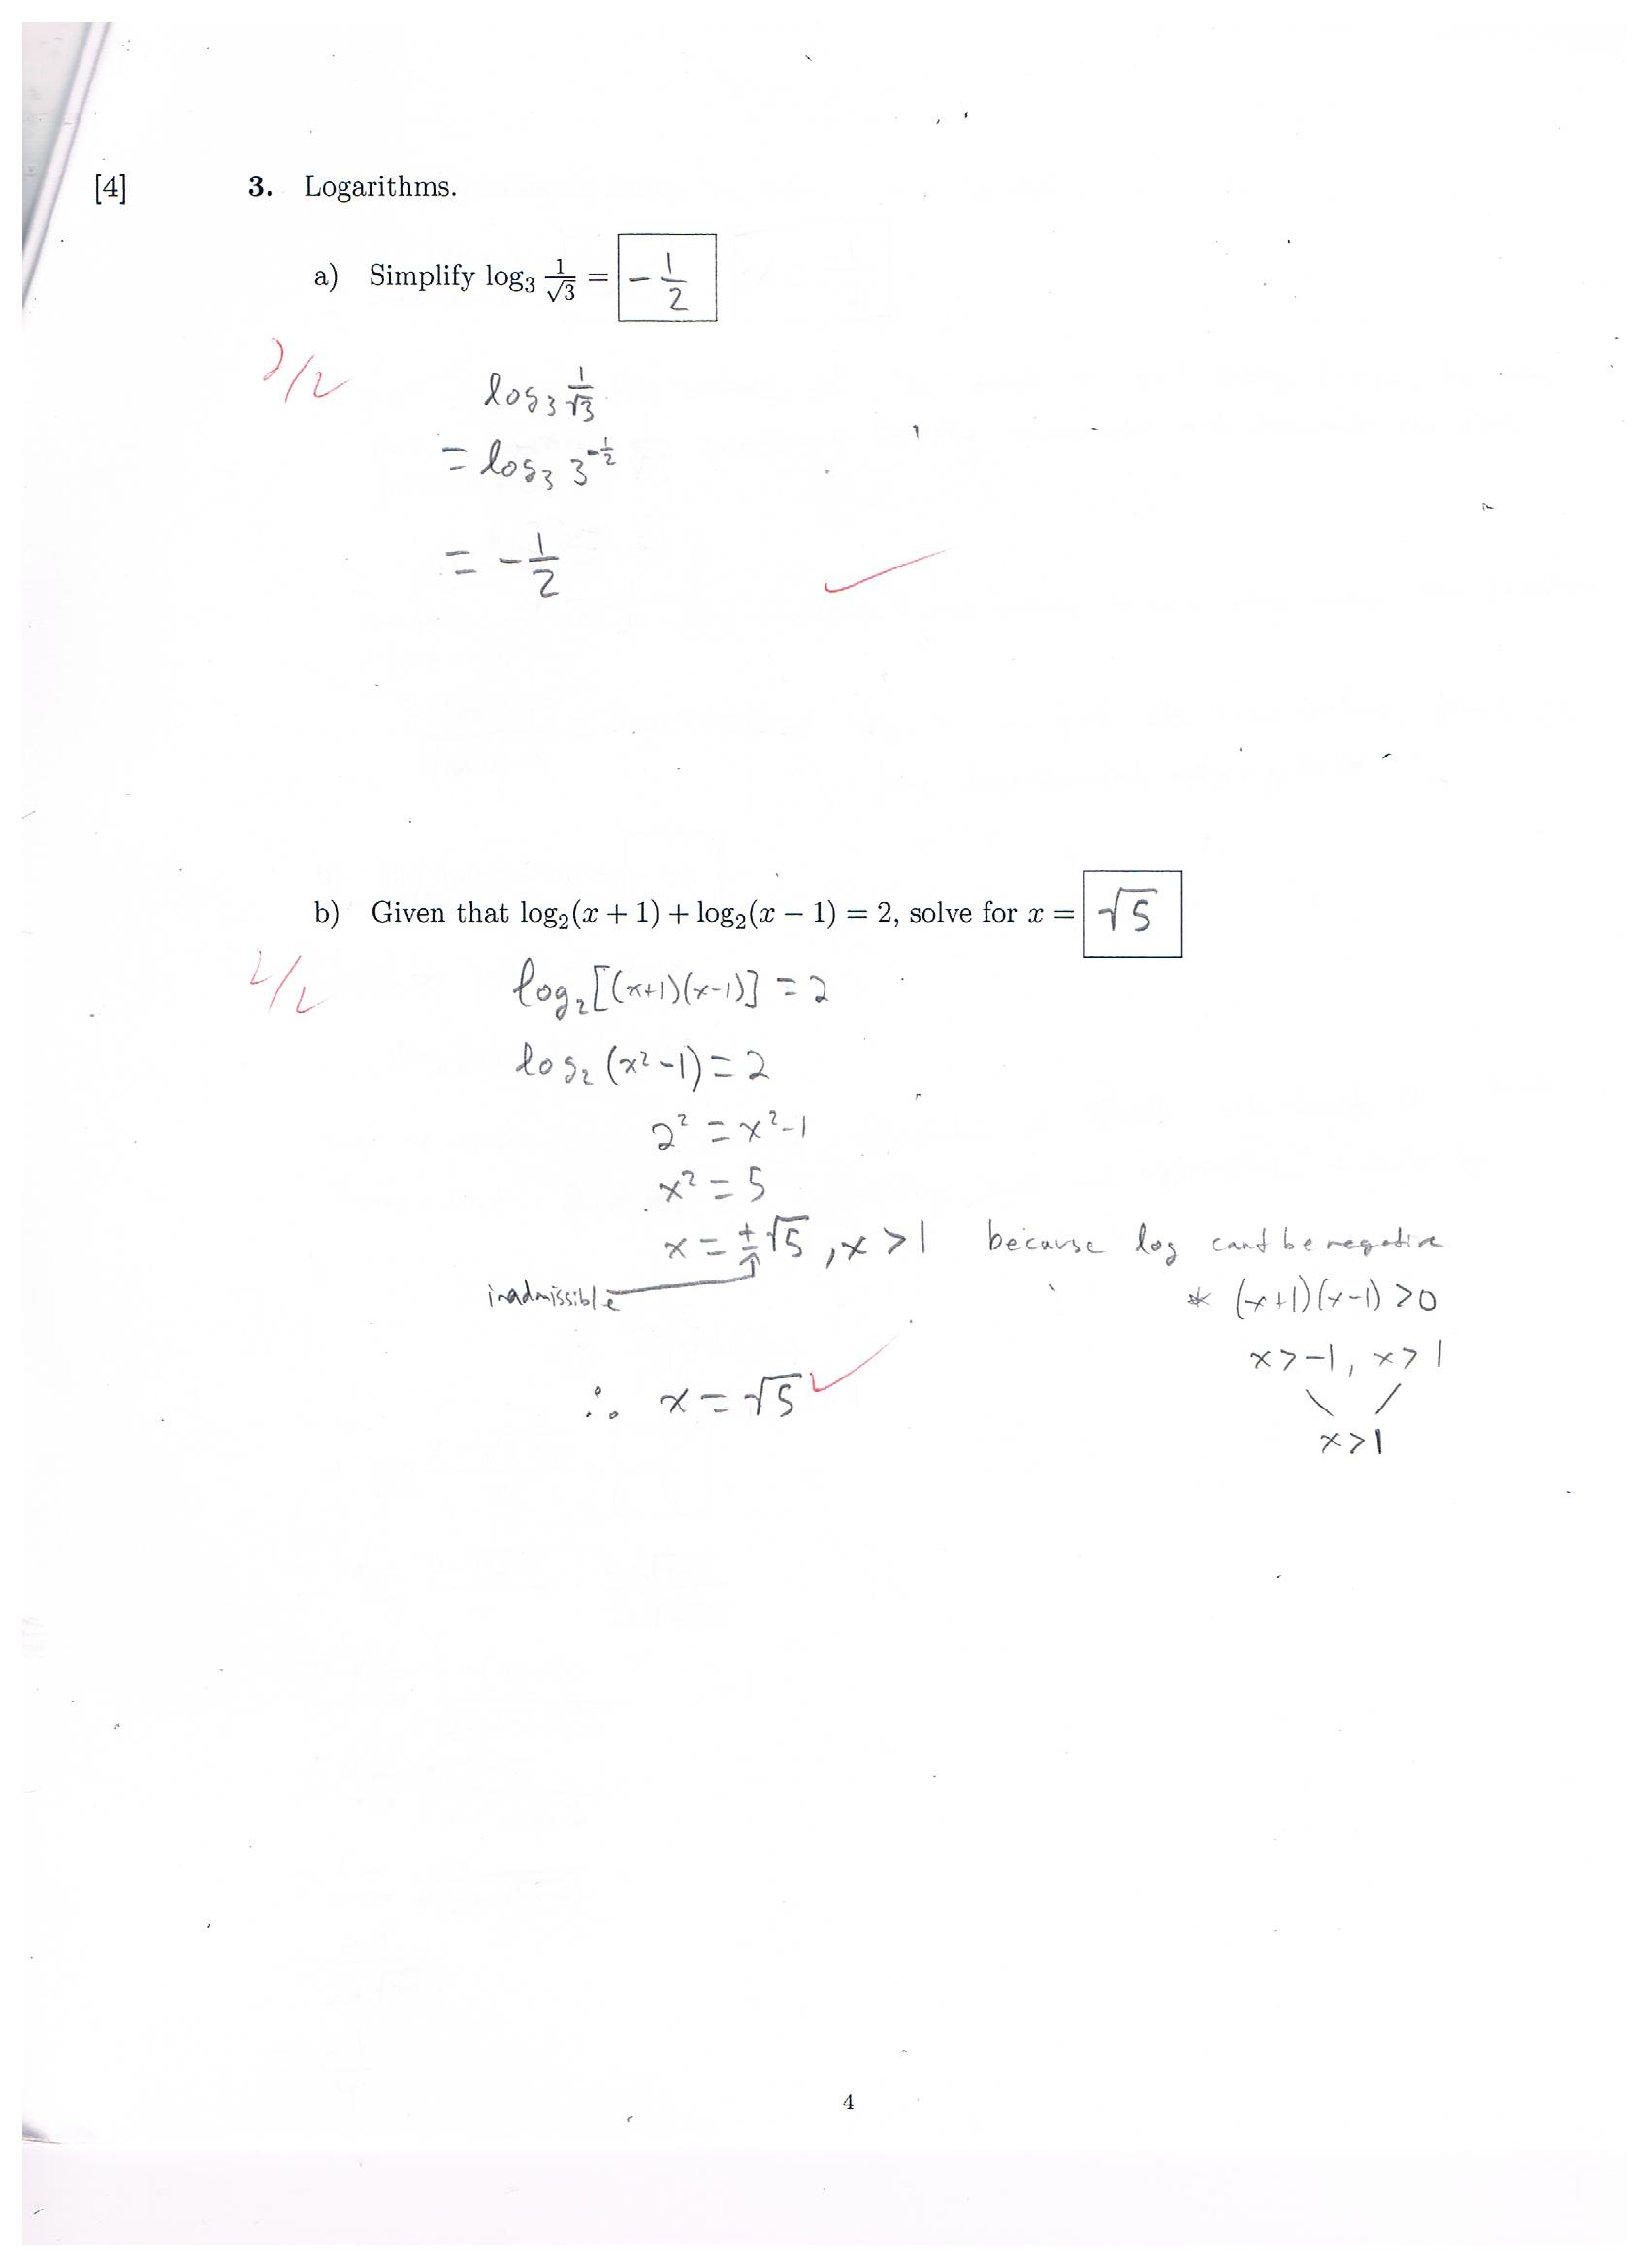 [4] 3. Logarithms.
a) Simplify log₃ 1/√3 = -1/2
2/2
log₃ 1/√3
= log₃ 3^(-1/2)
= -1/2
b) Given that log₂(x + 1) + log₂(x − 1) = 2, solve for x = √5
2/2
log₂[(x+1)(x-1)] = 2
log₂(x²-1) = 2
2² = x²-1
x² = 5
x = ±√5, x > 1 because log cant be negative
inadmissible
* (x+1)(x-1) > 0
x > -1, x > 1
∴ x = √5
x > 1
4